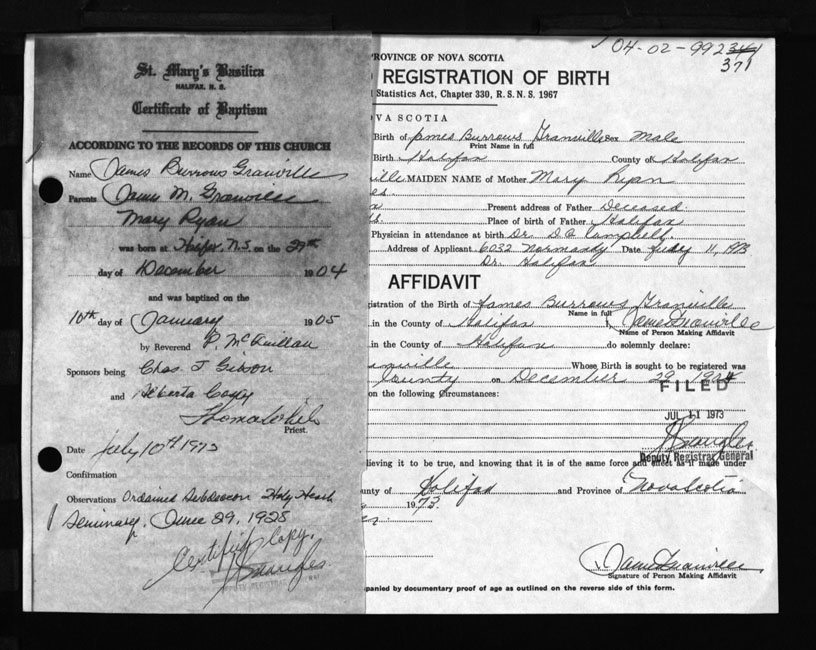 St. Mary's Basilica
HALIFAX, N. S.
Certificate of Baptism
ACCORDING TO THE RECORDS OF THIS CHURCH
Name James Burrows Granville
Parents James M. Granville
Mary Ryan
was born at Halifax N.S. on the 29th
day of December 1904
and was baptized on the
10th day of January 1905
by Reverend P. McQuillan
Sponsors being Chas. J Gibson
and Alberta
Priest.
Date July 10th 1973
Confirmation
Observations Ordained Subdeacon Holy Heart
Seminary, June 29, 1928
Certified Copy.
04-02-992341
371
PROVINCE OF NOVA SCOTIA
REGISTRATION OF BIRTH
Statistics Act, Chapter 330, R. S. N. S. 1967
OVA SCOTIA
Birth of James Burrows Granville Sex Male
Print Name in full
Birth Halifax County of Halifax
ille MAIDEN NAME of Mother Mary Ryan
Present address of Father Deceased.
Place of birth of Father Halifax
Physician in attendance at birth Dr. D. A. Campbell.
Address of Applicant 6032 Normandy Date July 11, 1973
Dr. Halifax
AFFIDAVIT
gistration of the Birth of James Burrows Granville
Name in full
in the County of Halifax I, James Granville
Name of Person Making Affidavit
in the County of Halifax do solemnly declare:
anville Whose Birth is sought to be registered was
County on December 29 1904
on the following Circumstances:
FILED
JUL 11 1973
Deputy Registrar General
lieving it to be true, and knowing that it is of the same force and effect as if made under
unty of Halifax and Province of Nova Scotia
1973.
James Granville
Signature of Person Making Affidavit
panied by documentary proof of age as outlined on the reverse side of this form.